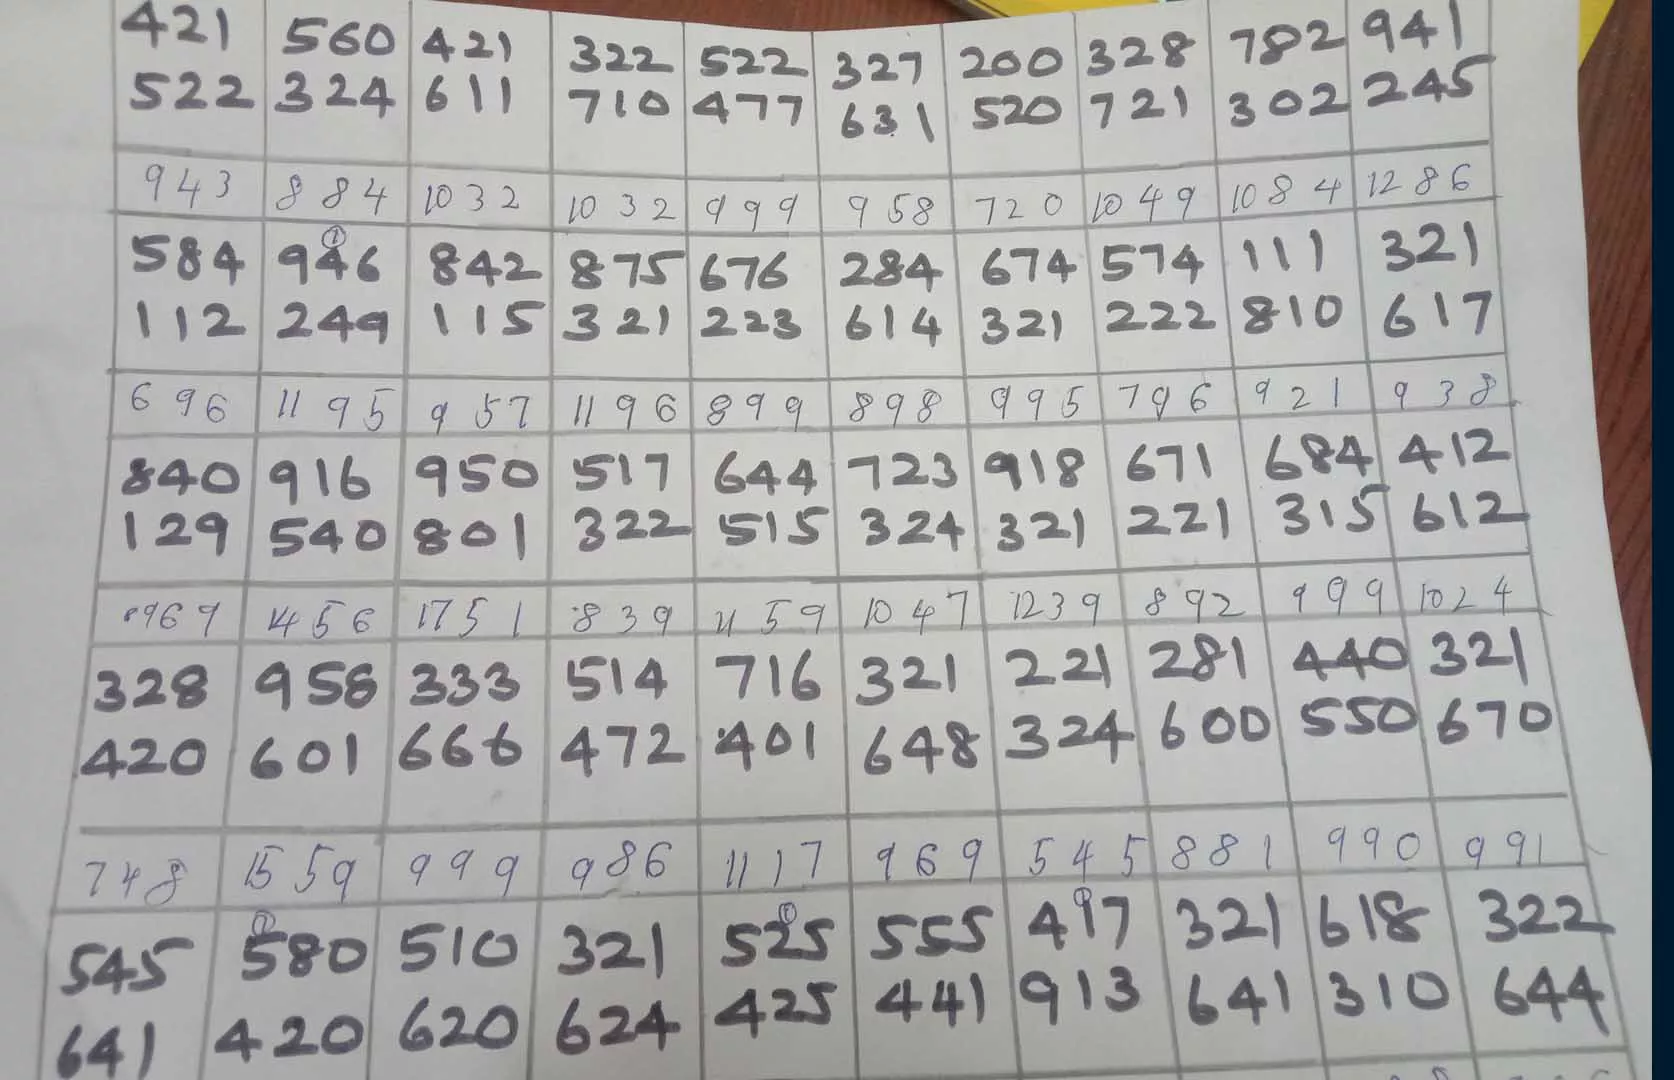 421 560 421 322 522 327 200 328 782 941
522 324 611 710 477 631 520 721 302 245
943 884 1032 1032 999 958 720 1049 1084 1286
1
584 946 842 875 676 284 674 574 111 321
112 249 115 321 223 614 321 222 810 617
696 1195 957 1196 899 898 995 796 921 938
840 916 950 517 644 723 918 671 684 412
129 540 801 322 515 324 321 221 315 612
969 1456 1751 839 1159 1047 1239 892 999 1024
328 958 333 514 716 321 221 281 440 321
420 601 666 472 401 648 324 600 550 670
748 1559 999 986 1117 969 545 881 990 991
1 1 1
545 580 510 321 525 555 497 321 618 322
641 420 620 624 425 441 913 641 310 644